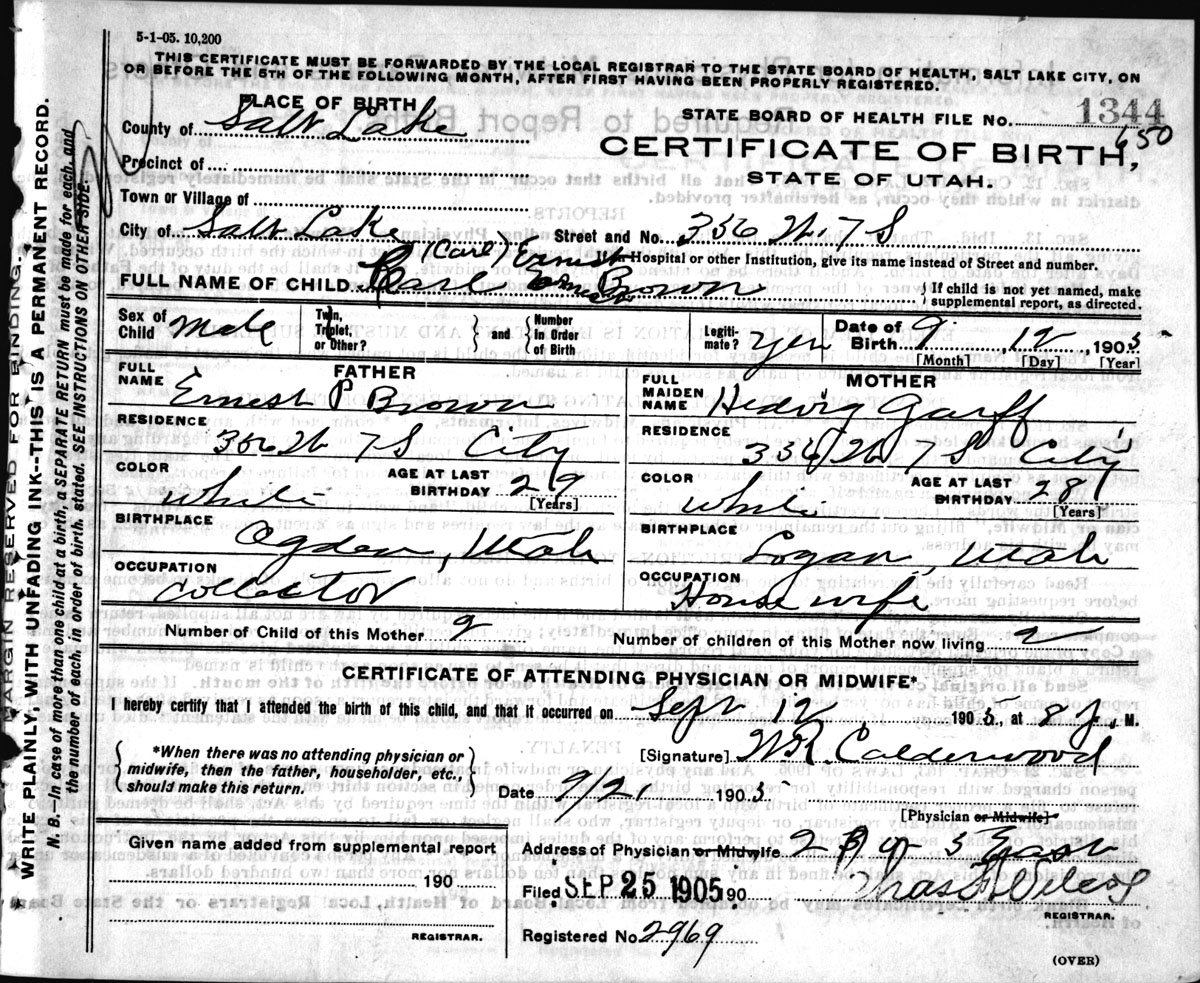 5-1-05. 10,200
THIS CERTIFICATE MUST BE FORWARDED BY THE LOCAL REGISTRAR TO THE STATE BOARD OF HEALTH, SALT LAKE CITY, ON
OR BEFORE THE 5TH OF THE FOLLOWING MONTH, AFTER FIRST HAVING BEEN PROPERLY REGISTERED.
PLACE OF BIRTH
County of Salt Lake
Precinct of
Town or Village of
City of Salt Lake
STATE BOARD OF HEALTH FILE NO. 1344
650
CERTIFICATE OF BIRTH,
STATE OF UTAH.
Street and No. 336 W. 7 S
(Carl) Ernest
If in Hospital or other Institution, give its name instead of Street and number.
FULL NAME OF CHILD Earl Brown
{ If child is not yet named, make
supplemental report, as directed.
Sex of Child Male
Twin, Triplet, or Other? } and { Number In Order of Birth
Legiti- mate? Yes
Date of Birth 9 12 1905
[Month] [Day] [Year]
FATHER
FULL NAME Ernest P Brown
RESIDENCE 336 W 7 S City
COLOR White
AGE AT LAST BIRTHDAY 29
[Years]
BIRTHPLACE Ogden, Utah
OCCUPATION Collector
MOTHER
FULL MAIDEN NAME Hedvig Garff
RESIDENCE 336 W 7 S City
COLOR White
AGE AT LAST BIRTHDAY 28
[Years]
BIRTHPLACE Logan, Utah
OCCUPATION House wife
Number of Child of this Mother 2
Number of children of this Mother now living 2
CERTIFICATE OF ATTENDING PHYSICIAN OR MIDWIFE*
I hereby certify that I attended the birth of this child, and that it occurred on Sept 12 1905, at 8 P. M.
{ *When there was no attending physician or
midwife, then the father, householder, etc.,
should make this return. }
[Signature] W.R. Calderwood
Date 9/21 1905
[Physician or Midwife]
Given name added from supplemental report
190
REGISTRAR.
Address of Physician or Midwife
Filed SEP 25 1905 90
REGISTRAR.
Registered No. 2969
(OVER)
MARGIN RESERVED FOR BINDING.
WRITE PLAINLY, WITH UNFADING INK---THIS IS A PERMANENT RECORD.
N. B.--In case of more than one child at a birth, a SEPARATE RETURN must be made for each, and
the number of each, in order of birth, stated. SEE INSTRUCTIONS ON OTHER SIDE.